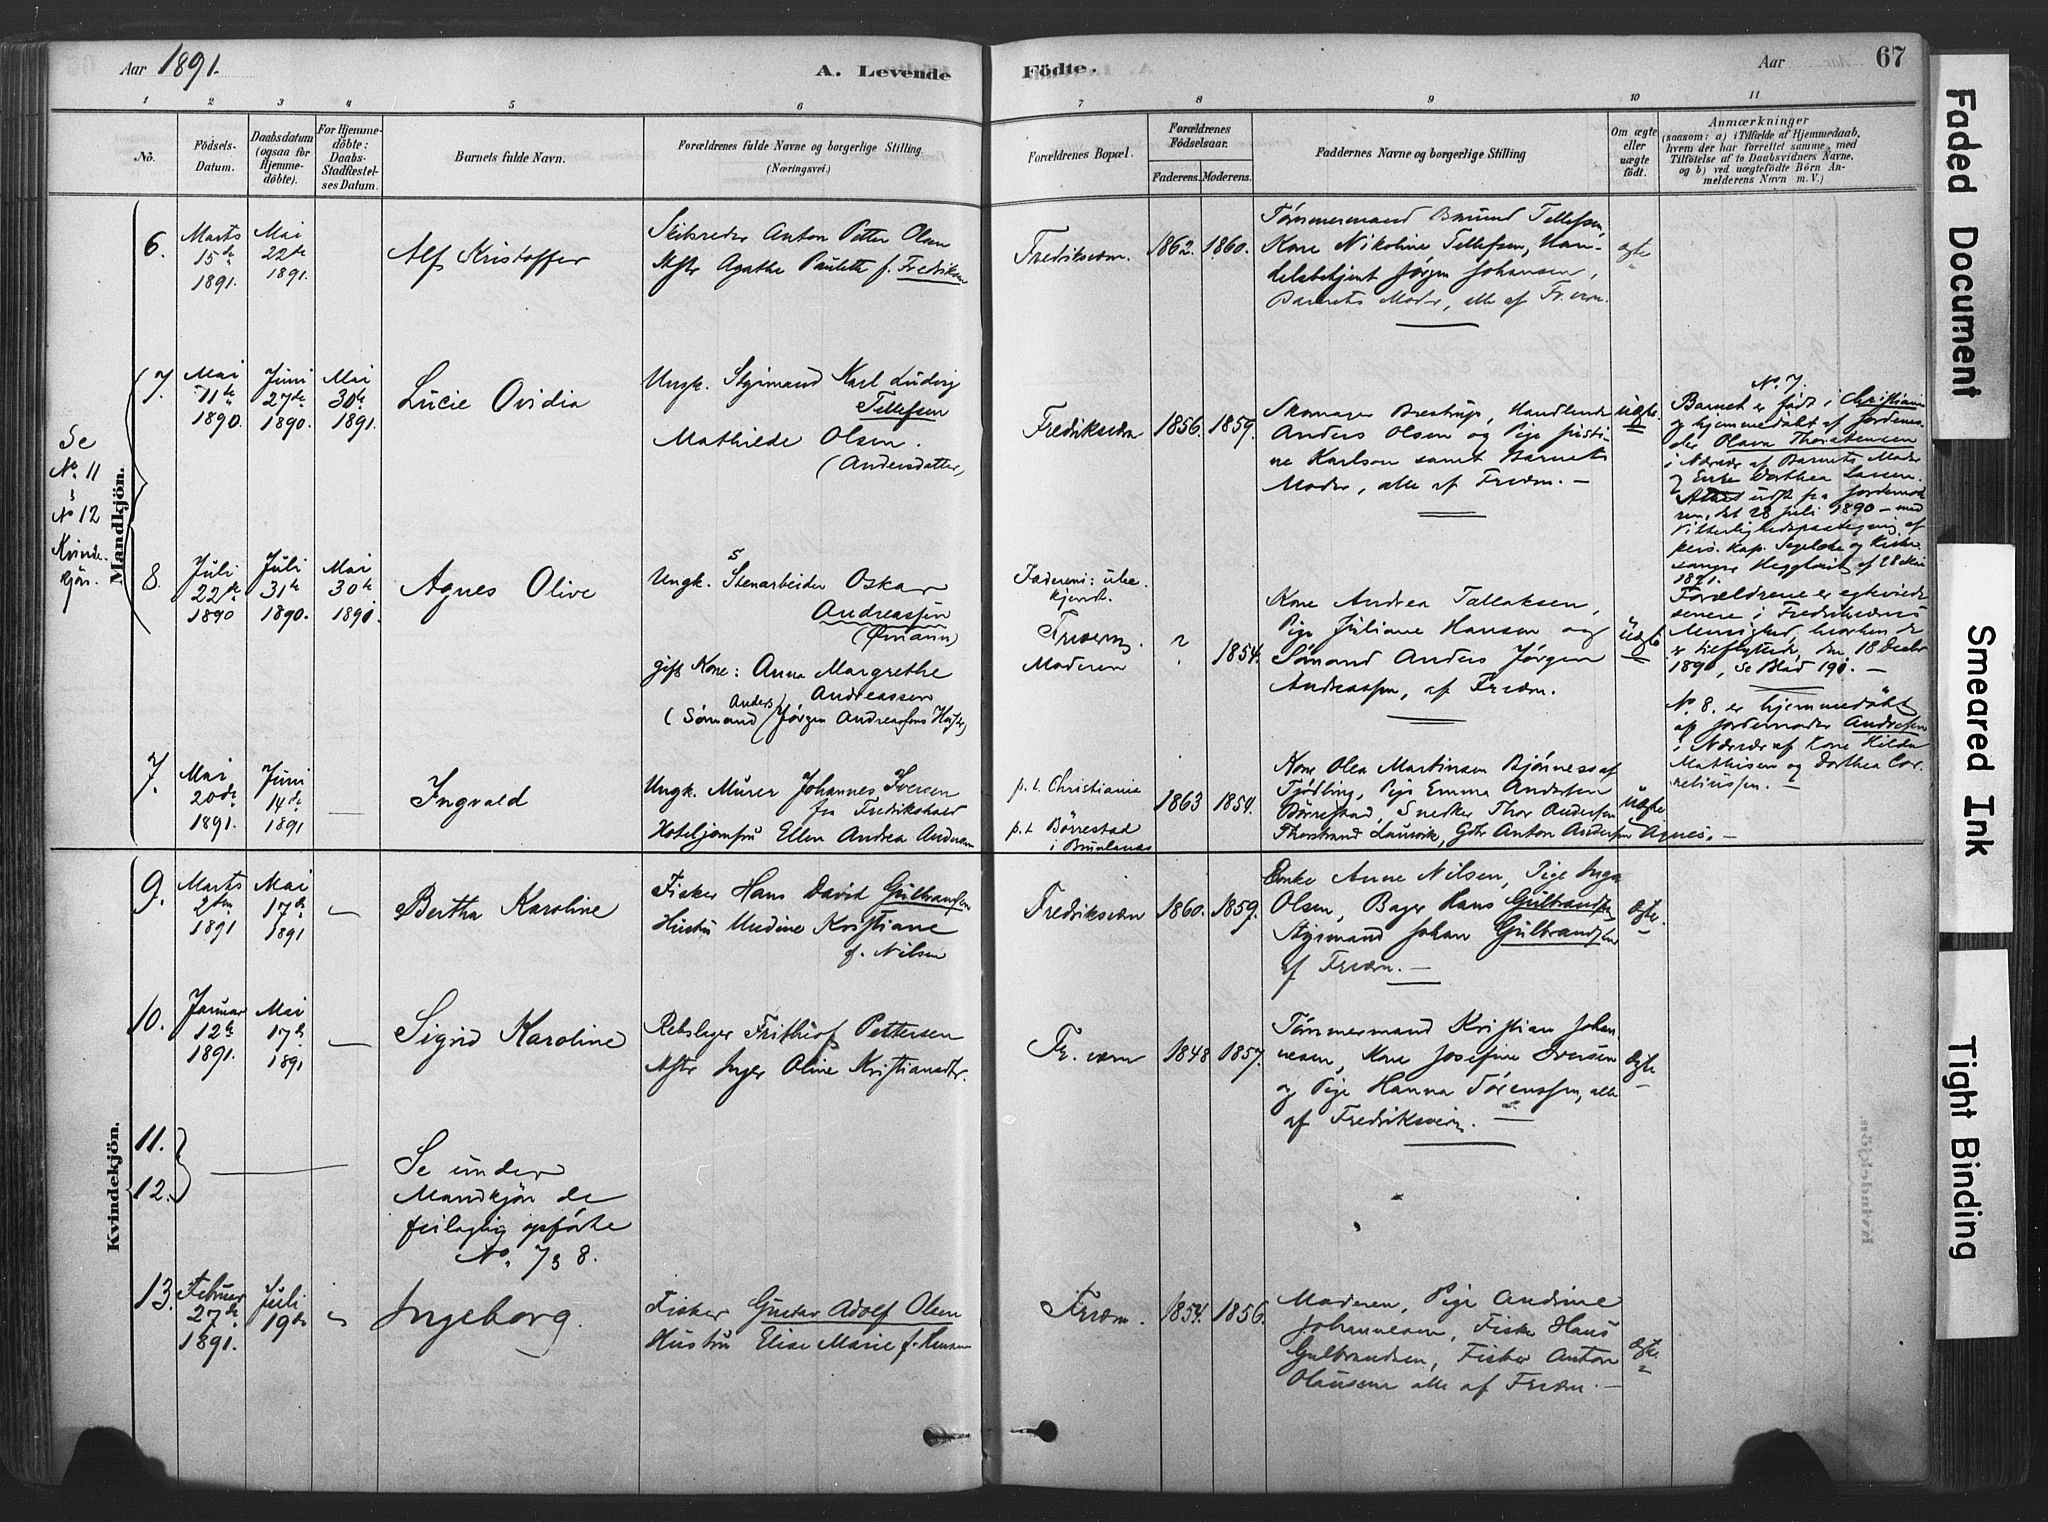 Aar 1891.
A. Levende
Födte.
Aar
67
1 2 3 4 5 6 7 8 9 10 11
No.
Födsels-
Datum.
Daabsdatum
(ogsaa for
Hjemme-
döbte).
For Hjemme-
döbte:
Daabs-
Stadfæstel-
ses Datum.
Barnets fulde Navn.
Forældrenes fulde Navne og borgerlige Stilling.
(Næringsvei.)
Forældrenes Bopæl.
Forældrenes
Födselsaar.
Faderens. Moderens.
Faddernes Navne og borgerlige Stilling
Om ægte
eller
uægte
födt.
Anmærkninger
(saasom: a) i Tilfælde af Hjemmedaab,
hvem der har forrettet samme, med
Tilföielse af to Daabsvidners Navne,
og b) ved uægtefödte Börn An-
melderens Navn m. V.)
Mandkjön.
Se
No. 11
&
No 12
Kvinde-
kjön.
6.
Marts
15de
1891.
Mai
22de
1891.
Alf Kristoffer
Skibsreder Anton Petter Olsen
Hstr Agathe Paulette f. Fredriksen
Fredriksværn.
1862. 1860.
Tømmermand Tellefsen,
Kone Nikoline Tellefsen, Han-
delsbetjent Jørgen Johansen,
Barnets Moder, alle af Fr.værn.
ægte
7.
Mai
11te
1890.
Juni
27de
1890.
Mai
30te
1891.
Lucie Ovidia
Ungk. Styrmand Karl Ludvig
Tellefsen
Mathilde Olsen.
(Andersdatter)
Fredriksværn
1856. 1859.
Skomager Brestrup, Handlende
Anders Olsen og Pige Justi-
ne Karlson samt Barnets
Moder, alle af Frværn. —
uægte.
No. 7.
Barnet er født i Christiania
og hjemmedøbt af Jordemo-
der Olava Thorstensen
i Nærvær af Barnets Moder
og Enke Dorthea Larsen.
Attest udst. fra Jordemode-
ren, dat. 28 Juli 1890 — med
Vitterlighedspaategning af
pers. kap. og Kirke-
sanger af 28 Mai
1891.
Forældrene er egteviede
senere i Fredriksværns
Menighed, hvorhen de
er tilflyttede, den 18 Decbr
1890, se Blad 190. —
8.
Juli
22de
1890
Juli
31te
1890.
Mai
30te
1891.
Agnes Olive
Ungk. Stenarbeider Oskar
Andreassen
(Ømann)
gift Kone: Anna Margrethe
Andreassen
(Sømand Anders Jørgen Andreassens Hustr.)
Faderens: ube-
kjendt.
Frværn
Moderen
? 1854.
Kone Andrea Tallaksen,
Pige Juliane Hansen og
Sømand Anders Jørgen
Andreassen, af Frværn.
uægte
No 8. er hjemmedøbt
af Jordemoder Andresen
i Nærvær af Kone Hilda
Mathisen og Dorthea Cor-
neliussen. —
7.
Mai
20de
1891.
Juni
14de
1891
—
Ingvald
Ungk. Murer Johannes Iversen
fra Fredrikshald
Hoteljomfru Ellen Andrea Andersen
p.t. Christiania
p.t. Børrestad
i Brunlanæs
1863 1854.
Kone Olea Martinsen Bjønnes af
Tjødling, Pige Emma Andersen
Børrestad, Snedker Thor Andersen
Thorstrand Laurvik, Gdbr Anton Andersen Agnes. —
uægte
Kvindekjön.
9.
Marts
2den
1891
Mai
17de
1891
—
Bertha Karoline
Fisker Hans David Gulbrandsen
Hustru Undine Kristiane
f. Nilsen
Fredriksværn
1860. 1859.
Enke Anne Nilsen, Pige Inga
Olsen, Bager Hans Gulbrandsen,
Styrmand Johan Gulbrandsen
af Frværn. —
ægte.
10.
Januar
12te
1891.
Mai
17de
1891
—
Sigrid Karoline
Rebslager Frithjof Pettersen
Hstr Inger Oline Kristiansdtr.
Fr.værn
1848 1857.
Tømmermand Kristian Johan-
nesen, Kone Josefine Iversen
og Pige Hanna Sørenssen, alle
af Fredriksværn.
ægte
11.
12.
Se under
Mandkjön de
feilagtig opførte
No. 7 & 8.
13.
Februar
27de
1891.
Juli
19de
Ingeborg.
Fisker Gustav Adolf Olsen
Hustru Elise Marie f. Hansen
Frværn.
1854. 1856.
Moderen, Pige Andrine
Johannesen, Fisker Hans
Gulbrandsen, Fisker Anton
Olausen alle af Frværn. —
ægte.
Faded Document
Smeared Ink
Tight Binding